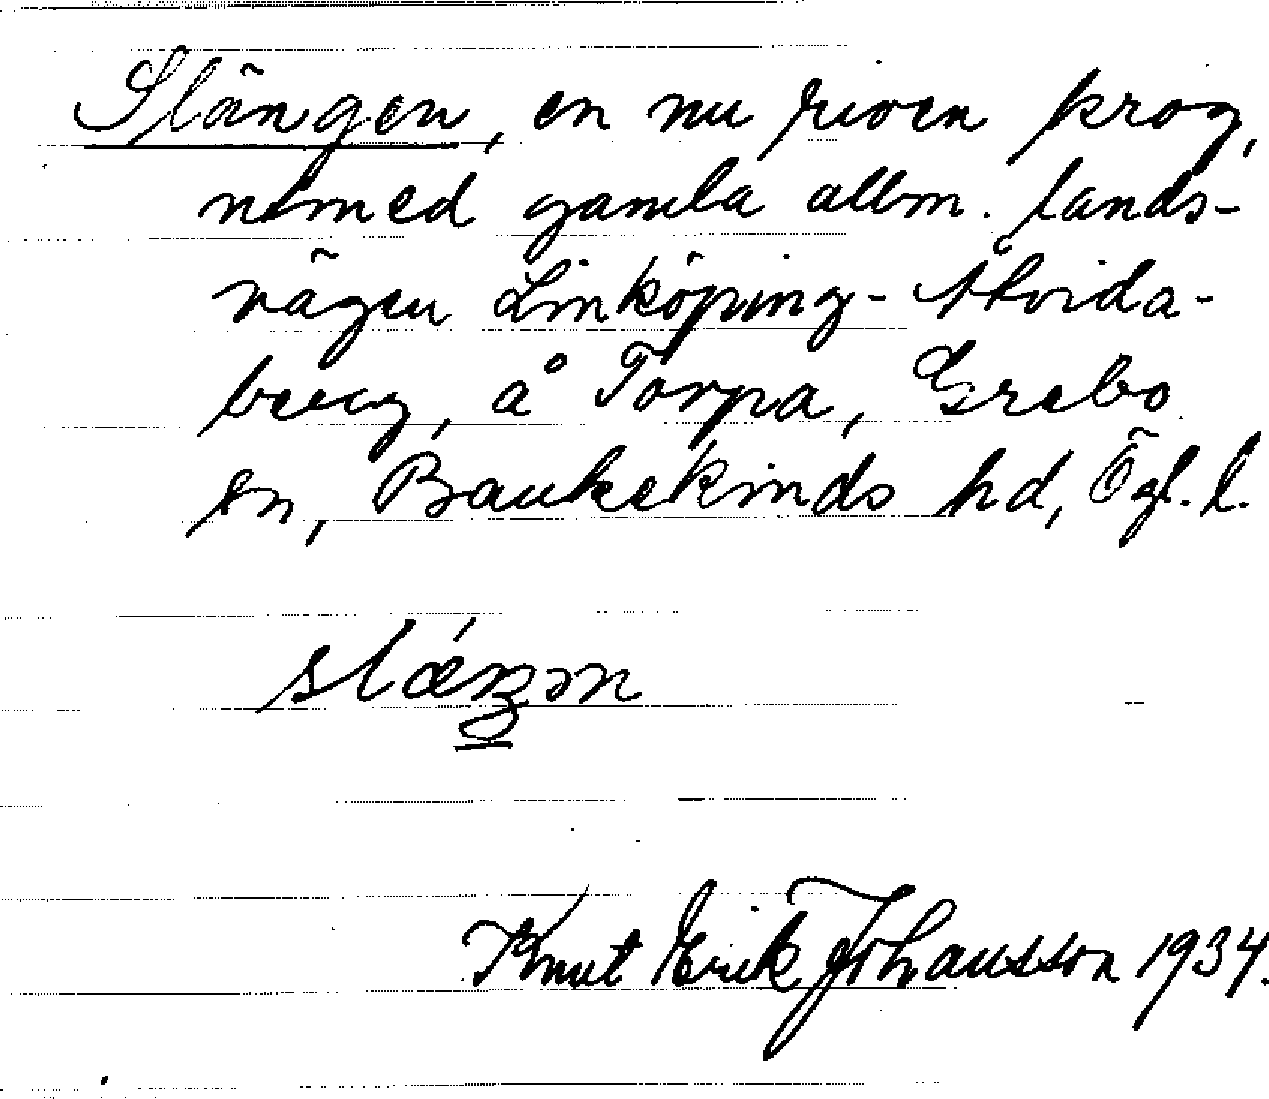 Slängen, en nu riven krog,
invid gamla allm. lands-
vägen Linköping-Åtvida-
berg, å Torpa, Grebo
sn, Bankekinds hd, Ögl. l.
Knut Erik Johansson 1934.